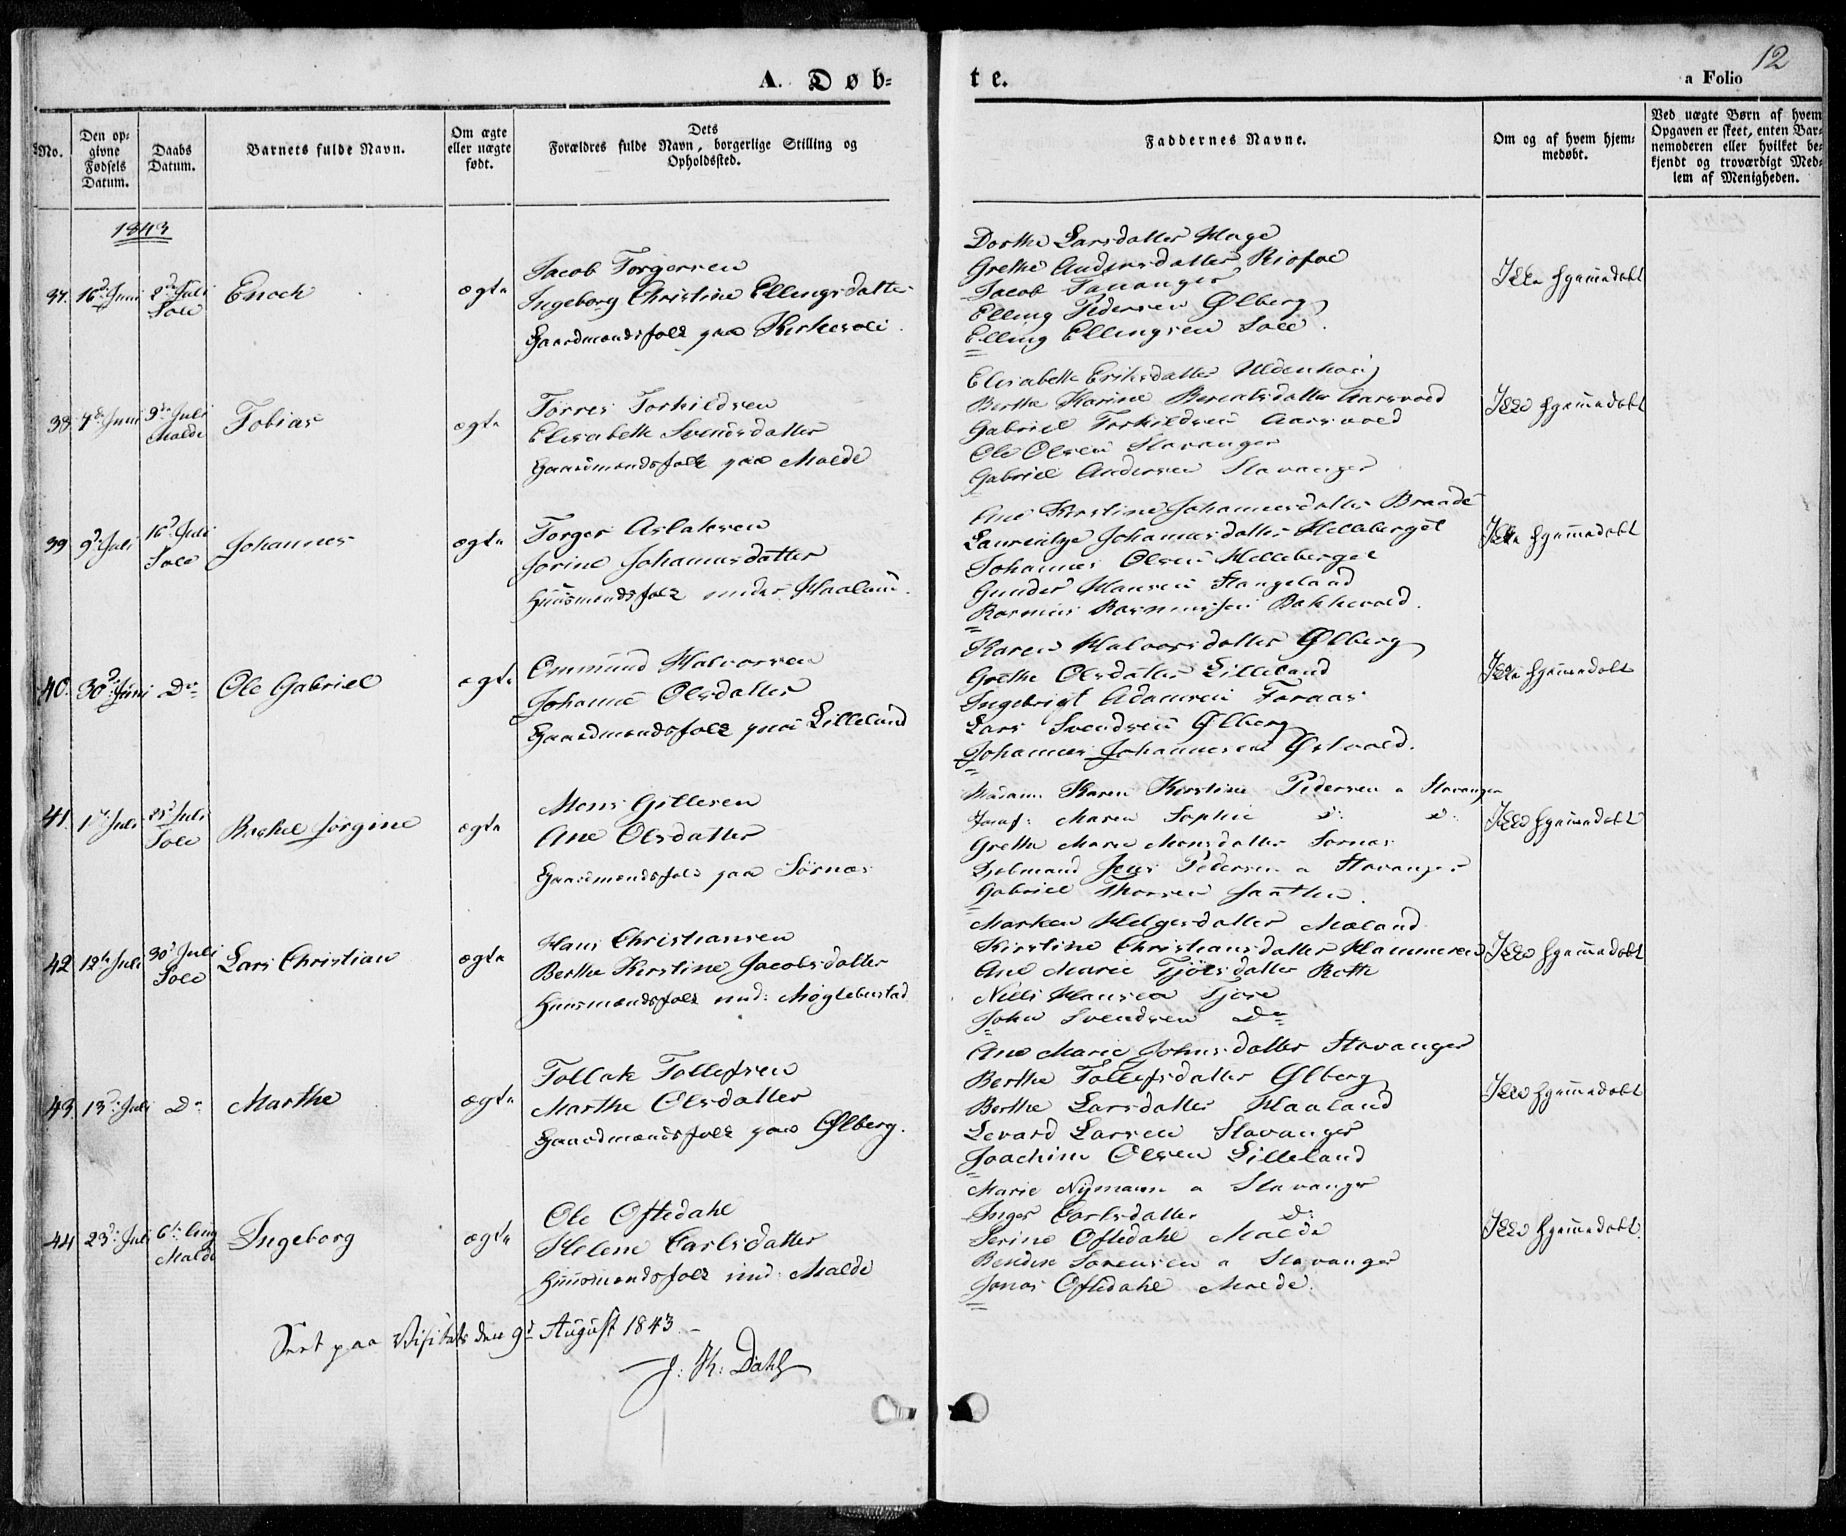 12
A. Døb=
te.
a Folio
No.
Den op=
givne
Fødsels
Datum.
Daabs
Datum.
Barnets fulde Navn.
Om ægte
eller uægte
født.
Dets
Forældres fulde Navn, borgerlige Stilling og
Opholdssted.
Faddernes Navne.
Om og af hvem hjem=
medøbt.
Ved uægte Børn af hvem
Opgaven er skeet, enten Bar=
nemoderen eller hvilket be=
kjendt og troværdigt Med=
lem af Menigheden.
1843
37. 16d: Juni 2den Juli
Sole
Enoch
ægte
Jacob Torgersen
Ingeborg Christine Ellingsdatter
Gaardmandsfolk paa Kirkesole.
Dorthe Larsdatter Hage
Grethe Andersdatter Risfoe
Jacob Tananger
Elling Pedersen Ølberg
Elling Ellingsen Sole.
Ikke hjemmedøbt
38. 7de Juni 9de Juli
Malde
Tobias
ægte
Torres Torkildsen
Elisabeth Svendsdatter
Gaardmandsfolk paa Malde
Elisabeth Eriksdatter
Berthe Karine Berentsdatter Aarsvold
Gabriel Torkildsen Aarsvold
Ole Olsen Stavanger
Gabriel Andersen Stavanger
Ikke hjemmedøbt
39 9d: Juli 16d Juli
Sole
Johannes
ægte
Torger Aslaksen
Jorine Johannesdatter
Huusmandsfolk under Haaland.
Ane Kirstine Johannesdatter Braade
Laurentze Johannesdatter Melleberget
Johannes Olsen Melleberget
Gunder Hansen Stangeland
Rasmus Rasmussen Bakkevold.
Ikke hjemmedøbt
40. 30d: Juni Do
Ole Gabriel
ægte
Ommund Halvorsen
Johanne Olsdatter
Gaardmandsfolk paa Lilleland
Karen Halvorsdatter Ølberg
Grethe Olsdatter Lilleland
Ingebrigt Adamsen Foraas
Lars Svendsen Ølberg
Johannes Johannesen Østvold.
Ikke hjemmedøbt
41. 1ste Juli 25d Juli
Sole
Rachel Jørgine
ægte
Mons Gitlesen
Ane Olsdatter
Gaardmandsfolk paa Sørnæs
Madam Karen Kirstine Pedersen a Stavanger
Jomf: Maren Sophie d: d:
Grethe Marie Monsdatter Sornæs
Jens Pedersen a Stavanger
Gabriel Thorsen
Ikke hjemmedøbt
42 12te Juli 30d Juli
Sole
Lars Christian
ægte
Hans Christiansen
Berthe Kirstine Jacobsdatter
Huusmandsfolk und: Møglebustad
Marken Helgesdatter Mæland
Kirstine Christiansdatter Hammeren
Ane Marie Tjøsdatter Roth
Niels Hansen Tjore
John Svendsen Do
Ikke hjemmedøbt
43. 13d: Juli Do
Marthe
ægte
Tollak Tollefsen
Marthe Olsdatter
Gaardmandsfolk paa Ølberg.
Ane Marie Johnsdatter Stavanger
Berthe Tollefsdatter Ølberg
Berthe Larsdatter Haaland
Levard Larsen Stavanger
Joachim Olsen Lilleland
Ikke hjemmedøbt
44 23d: Juli 6t: Aug
Malde
Ingeborg
ægte
Ole Oftedahl
Helene Carlsdatter
Huusmandsfolk und: Malde
Marie Nymann a Stavanger
Inger Carlsdatter d:
Serine Oftedahl Malde
Bendix Sørensen a Stavanger
Jonas Oftedahl Malde.
Ikke hjemmedøbt.
Seet paa Visitats den 9d August 1843.
J: K: Dahl